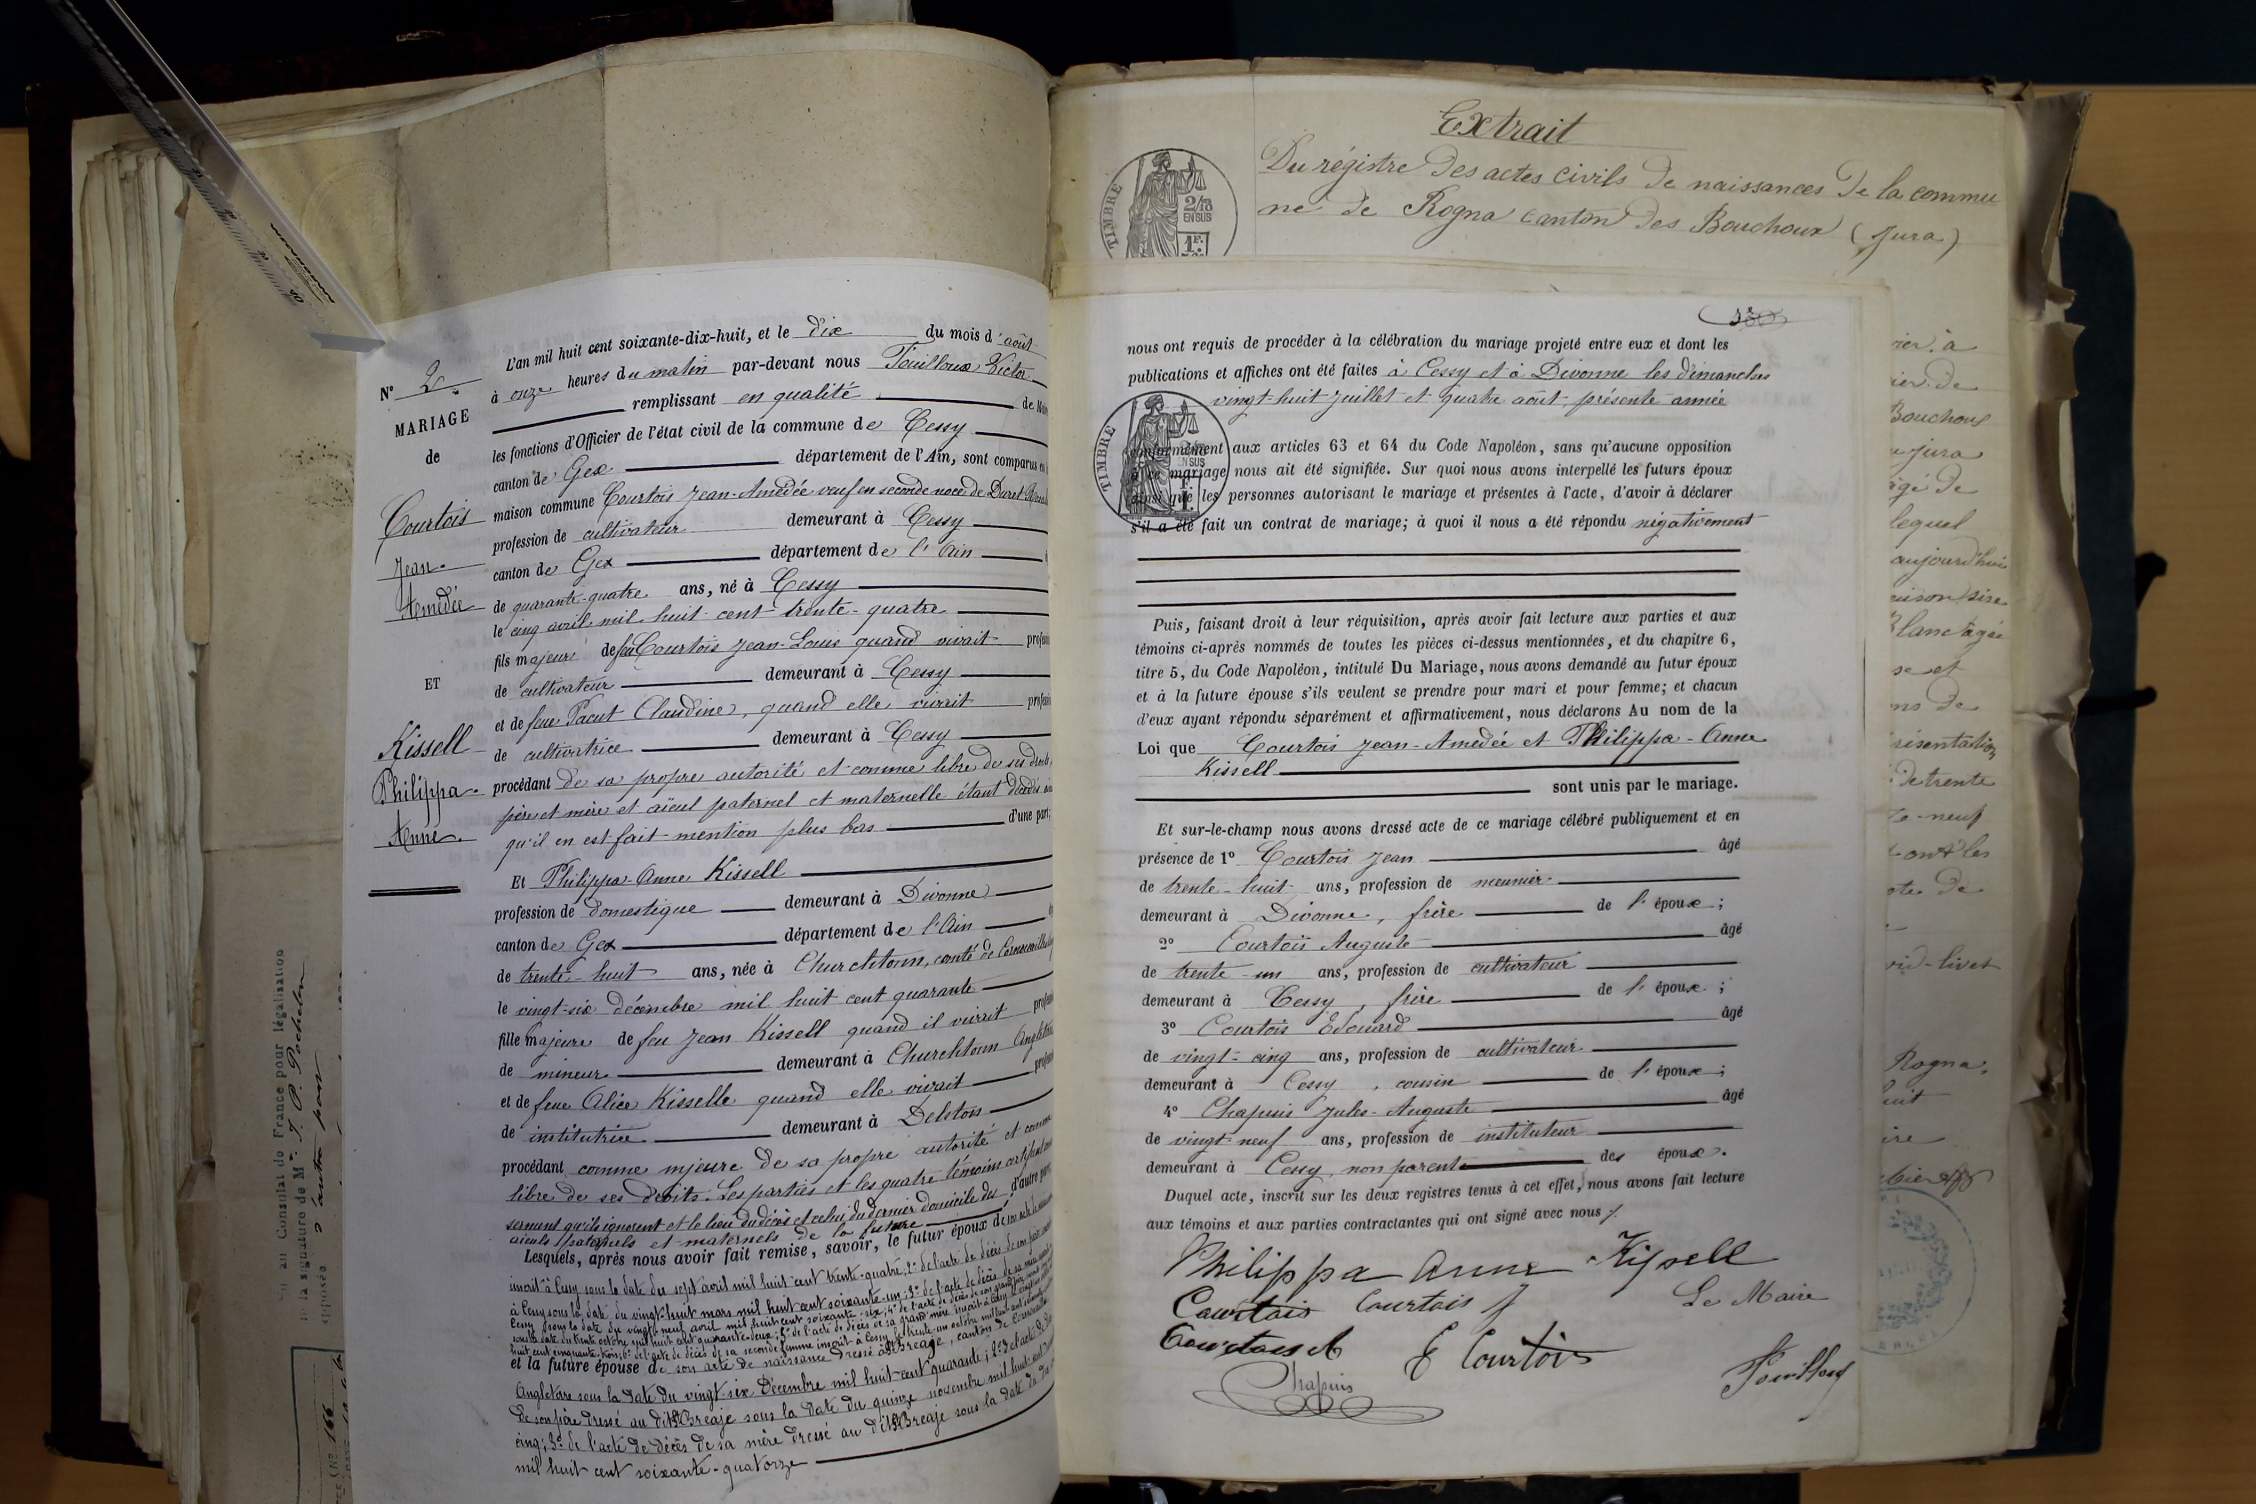 L'an mil huit cent soixante-dix-huit, et le dix du mois d'août
à onze heures du matin par-devant nous Fouilloux Victor
remplissant en qualité de
les fonctions d'Officier de l'état civil de la commune de Cessy
canton de Gex département de l'Ain, sont comparus en
maison commune Courtois Jean-Amédée veuf en seconde noce de
profession de cultivateur demeurant à Cessy
canton de Gex département de l'Ain
de quarante-quatre ans, né à Cessy
le cinq avril mil huit cent trente-quatre
fils majeur de feu Courtois Jean-Louis quand vivait
de cultivateur demeurant à Cessy
et de feue Pacut Claudine, quand elle vivait
de cultivatrice demeurant à Cessy
procédant de sa propre autorité et comme libre de ses droits
père et mère et aïeul paternel et maternelle étant décédés
qu'il en est fait mention plus bas d'une part;
Et Philippa-Anne Kissell
profession de domestique demeurant à Divonne
canton de Gex département de l'Ain
de trente-huit ans, née à Churchtown, conté de
le vingt-six décembre mil huit cent quarante
fille majeure de feu Jean Kissell quand il vivait
de mineur demeurant à Churchtown
et de feue Alice Kisselle quand elle vivait
de institutrice demeurant à
procédant comme mjeure de sa propre autorité et comme
libre de ses droits. Les parties et les quatre témoins
serment qu'ils ignorent et le lieu du décès et celui du dernier domicile des d'autre part.
aïeuls paternels et maternels de la future
Lesquels, après nous avoir fait remise, savoir, le futur époux de
inscrit à Cessy sous la date du sept avril mil huit cent trente-quatre; 2° de l'acte de décès de
à Cessy sous la date du vingt-huit mars mil huit cent soixante-un; 3° de l'acte de décès de sa mère
Cessy sous la date du vingt neuf avril mil huit cent soixante-six; 4° de l'acte de décès de son
sous la date du trente octobre mil huit cent quarante-deux; 5° de l'acte de décès de sa grand'mère inscrit à Cessy
huit cent cinquante-trois; 6° de l'acte de décès de sa seconde femme inscrit à Cessy le trente-un octobre
et la future épouse de son acte de naissance dressé à Breage, canton de
Angleterre sous la date du vingt-six Décembre mil huit cent quarante; 2°
de son père dressé au dit Breaje sous la date du quinze novembre mil huit cent
cinq; 3° de l'acte de décès de sa mère dressé au dit Breaje sous la date du
mil huit cent soixante-quatorze
N° 2.
MARIAGE
de
Courtois
Jean-
Amédée
ET
Kissell
Philippa-
Anne.
au Consulat de France pour légalisation
la signature de M
apposée d'autre part
N° 166
Extrait
Du régistre des actes civils de naissances de la commu
ne de Rogna canton des Bouchoux (Jura)
TIMBRE
2/13
EN SUS
1F.
nous ont requis de procéder à la célébration du mariage projeté entre eux et dont les
publications et affiches ont été faites à Cessy et à Divonne les dimanches
vingt-huit juillet et quatre août, présente année
TIMBRE
EN SUS
conformément aux articles 63 et 64 du Code Napoléon, sans qu'aucune opposition
à ce mariage nous ait été signifiée. Sur quoi nous avons interpellé les futurs époux
ainsi que les personnes autorisant le mariage et présentes à l'acte, d'avoir à déclarer
s'il a été fait un contrat de mariage; à quoi il nous a été répondu négativement
Puis, faisant droit à leur réquisition, après avoir fait lecture aux parties et aux
témoins ci-après nommés de toutes les pièces ci-dessus mentionnées, et du chapitre 6,
titre 5, du Code Napoléon, intitulé Du Mariage, nous avons demandé au futur époux
et à la future épouse s'ils veulent se prendre pour mari et pour femme; et chacun
d'eux ayant répondu séparément et affirmativement, nous déclarons Au nom de la
Loi que Courtois Jean-Amédée et Philippa-Anne
Kissell
sont unis par le mariage.
Et sur-le-champ nous avons dressé acte de ce mariage célébré publiquement et en
présence de 1° Courtois Jean âgé
de trente-huit ans, profession de meunier
demeurant à Divonne, frère de l'époux;
2° Courtois Auguste âgé
de trente-un ans, profession de cultivateur
demeurant à Cessy, frère de l'époux;
3° Courtois Edouard âgé
de vingt-cinq ans, profession de cultivateur
demeurant à Cessy, cousin de l'époux;
4° Chapuis Jules-Auguste âgé
de vingt-neuf ans, profession de instituteur
demeurant à Cessy, non parent des époux.
Duquel acte, inscrit sur les deux registres tenus à cet effet, nous avons fait lecture
aux témoins et aux parties contractantes qui ont signé avec nous
Philippa Anne Kissell
Courtois Courtois J Le Maire
Courtois A E Courtois
Chapuis Fouilloux
Bouchoux
Jura
âgé de
lequel
aujourd'hui
se et
de trente
neuf
Rogna,